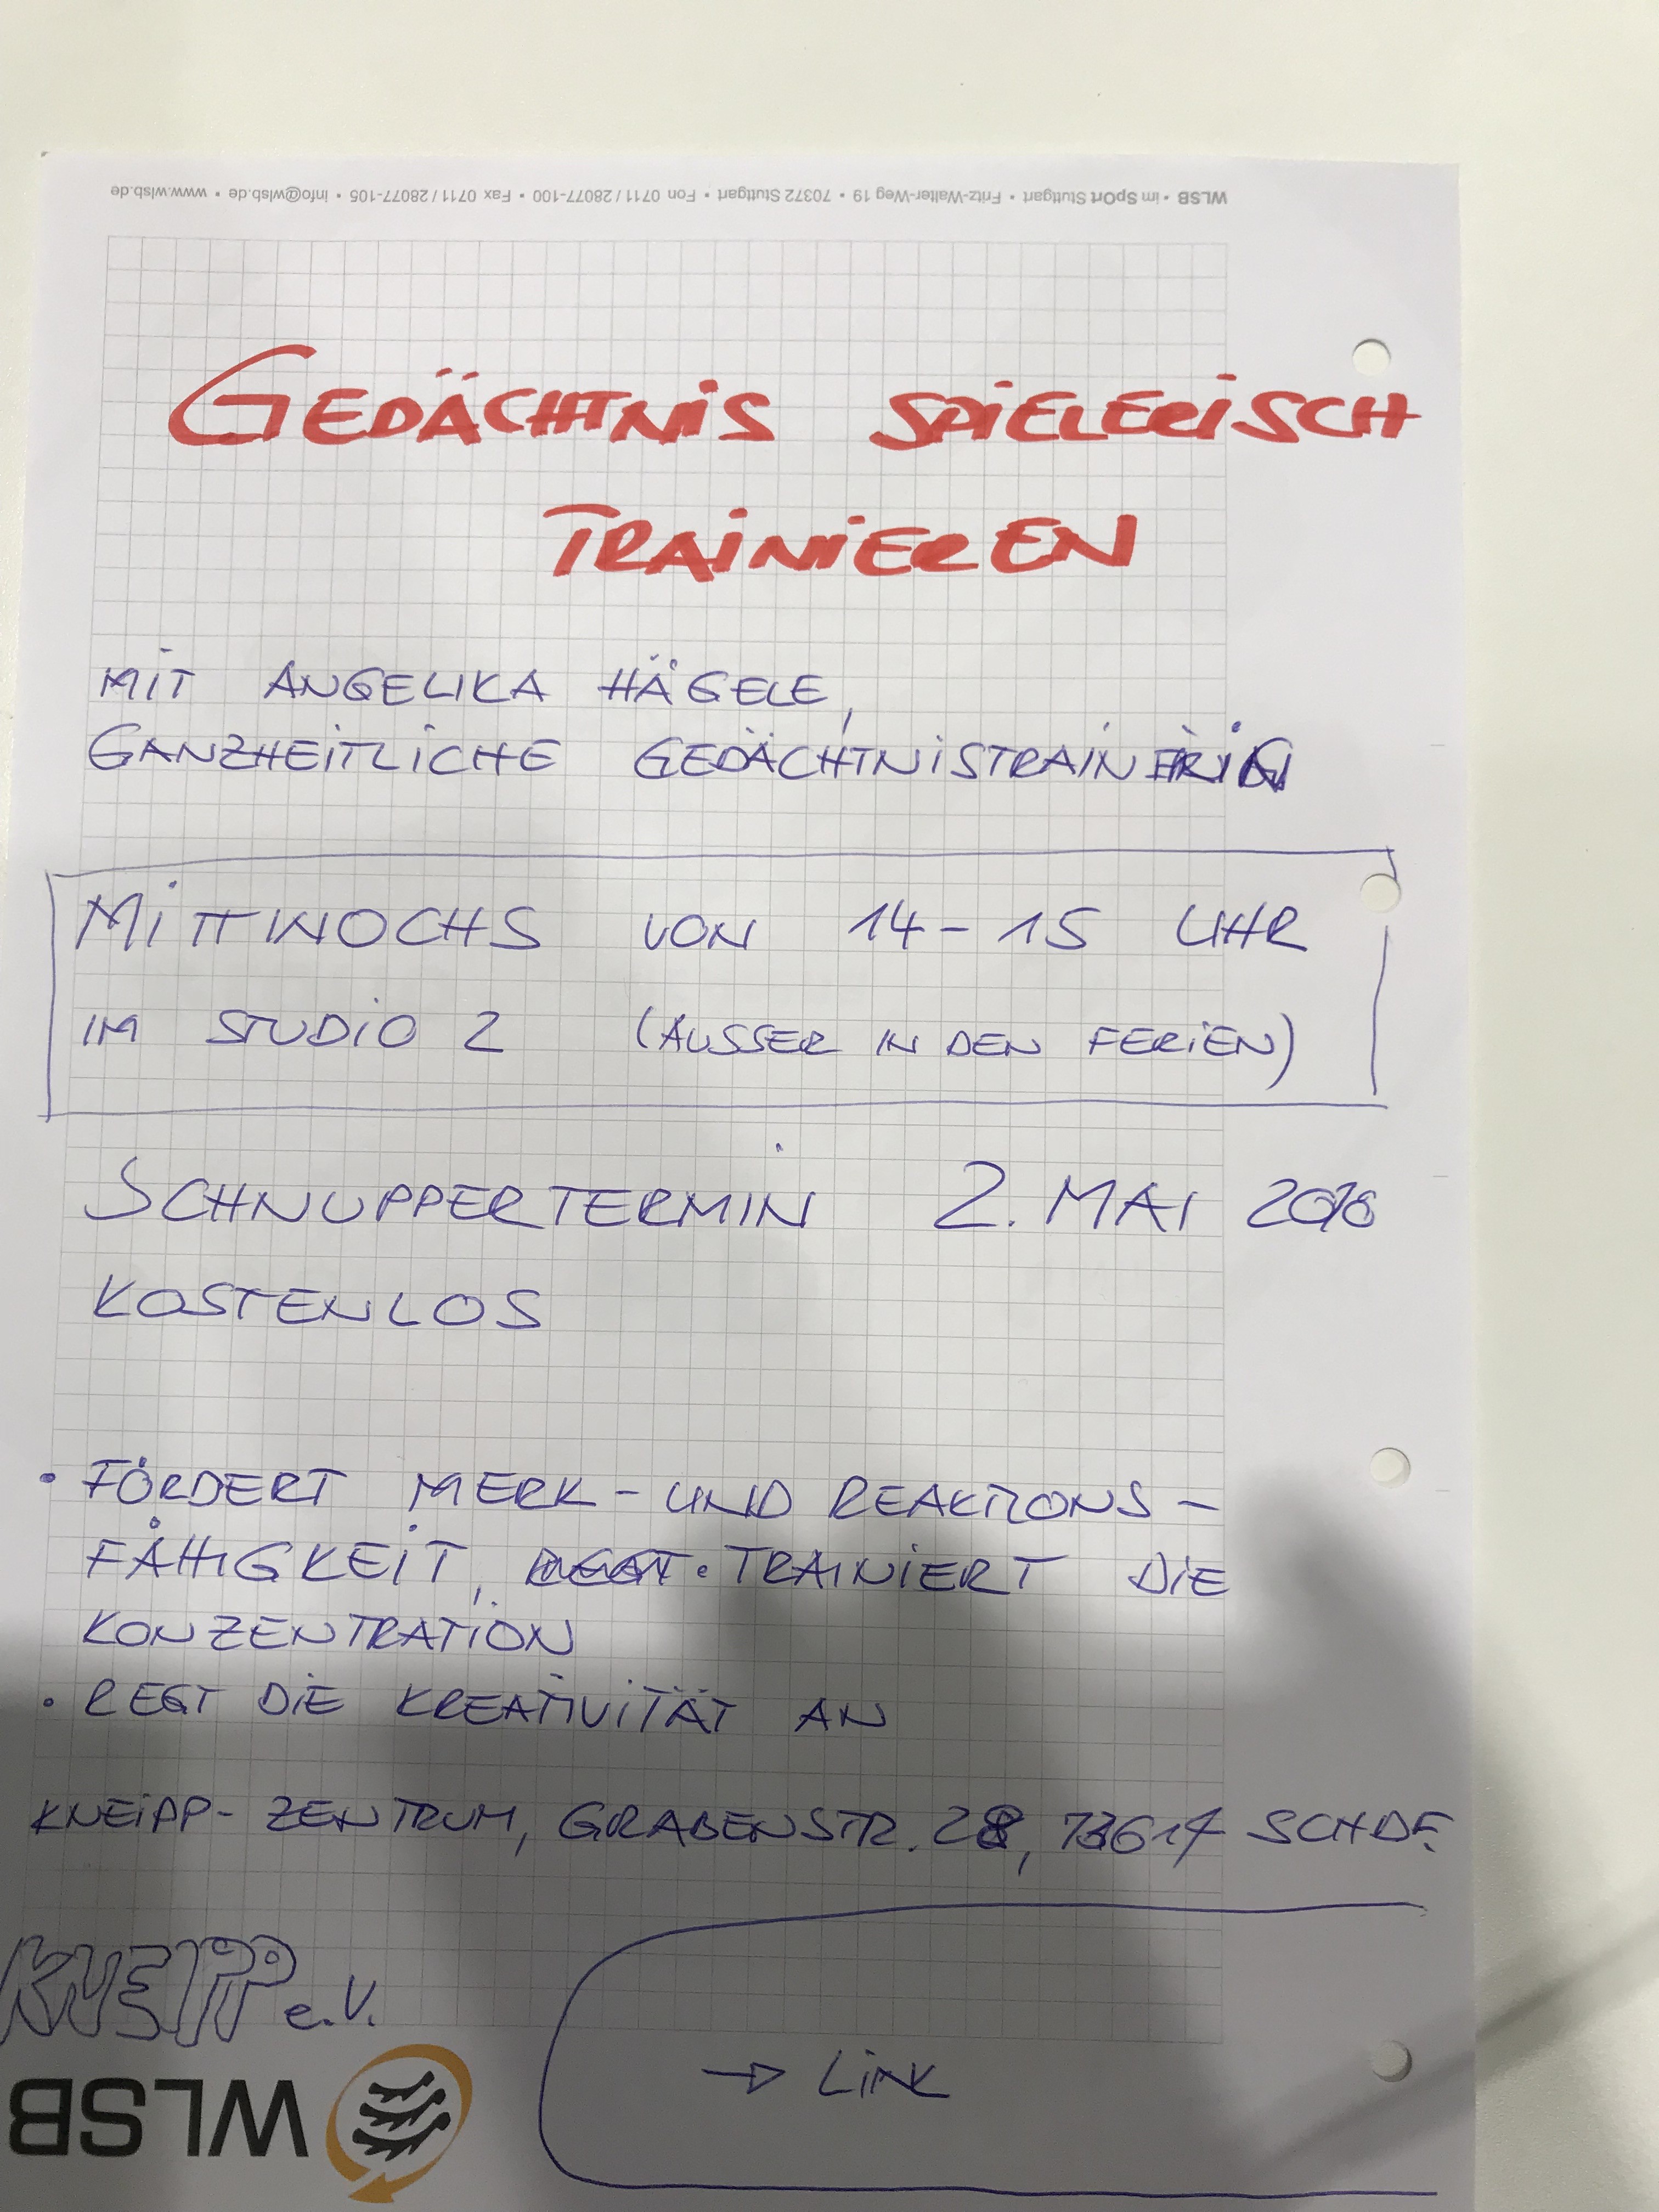 WLSB • im SpOrt Stuttgart • Fritz-Walter-Weg 19 • 70372 Stuttgart • Fon 0711 / 28077-100 • Fax 0711 / 28077-105 • info@wlsb.de • www.wlsb.de
GEDÄCHTNIS SPIELERISCH
TRAINIEREN
MIT ANGELIKA HÄGELE,
GANZHEITLICHE
MITTWOCHS VON 14-15 UHR
IM STUDIO 2 (AUSSER IN DEN FERIEN)
SCHNUPPERTERMIN 2. MAI 2018
KOSTENLOS
• FÖRDERT MERK- UND REAKTIONS-
FÄHIGKEIT, • TRAINIERT DIE
KONZENTRATION
• REGT DIE KREATIVITÄT AN
KNEIPP-ZENTRUM, GRABENSTR. 28, 73614 SCHDF.
KNEIPP e.V.
→ LINK
WLSB